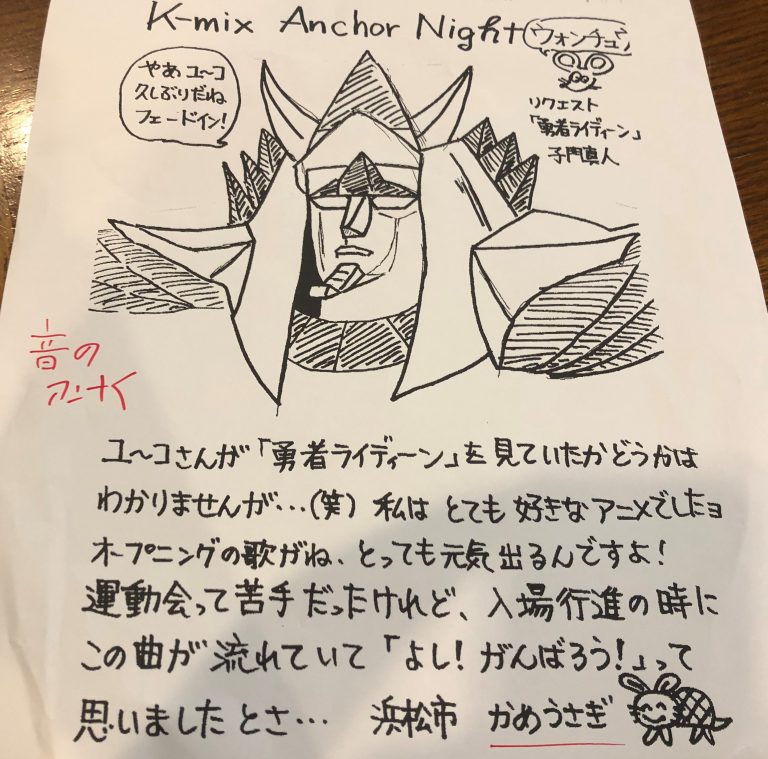 K-mix Anchor Night
ウォンチュ
やあ ユ〜コ
久しぶりだね
フェードイン!
リクエスト
「勇者ライディーン」
子門真人
音の
アンナイ
ユ〜コさんが「勇者ライディーン」を見ていたかどうかは
わかりませんが…(笑) 私は とても 好きな アニメでしたョ
オープニングの歌がね、とっても元気出るんですよ!
運動会って苦手だったけれど、入場行進の時に
この曲が流れていて「よし!がんばろう!」って
思いましたとさ… 浜松市 かめうさぎ